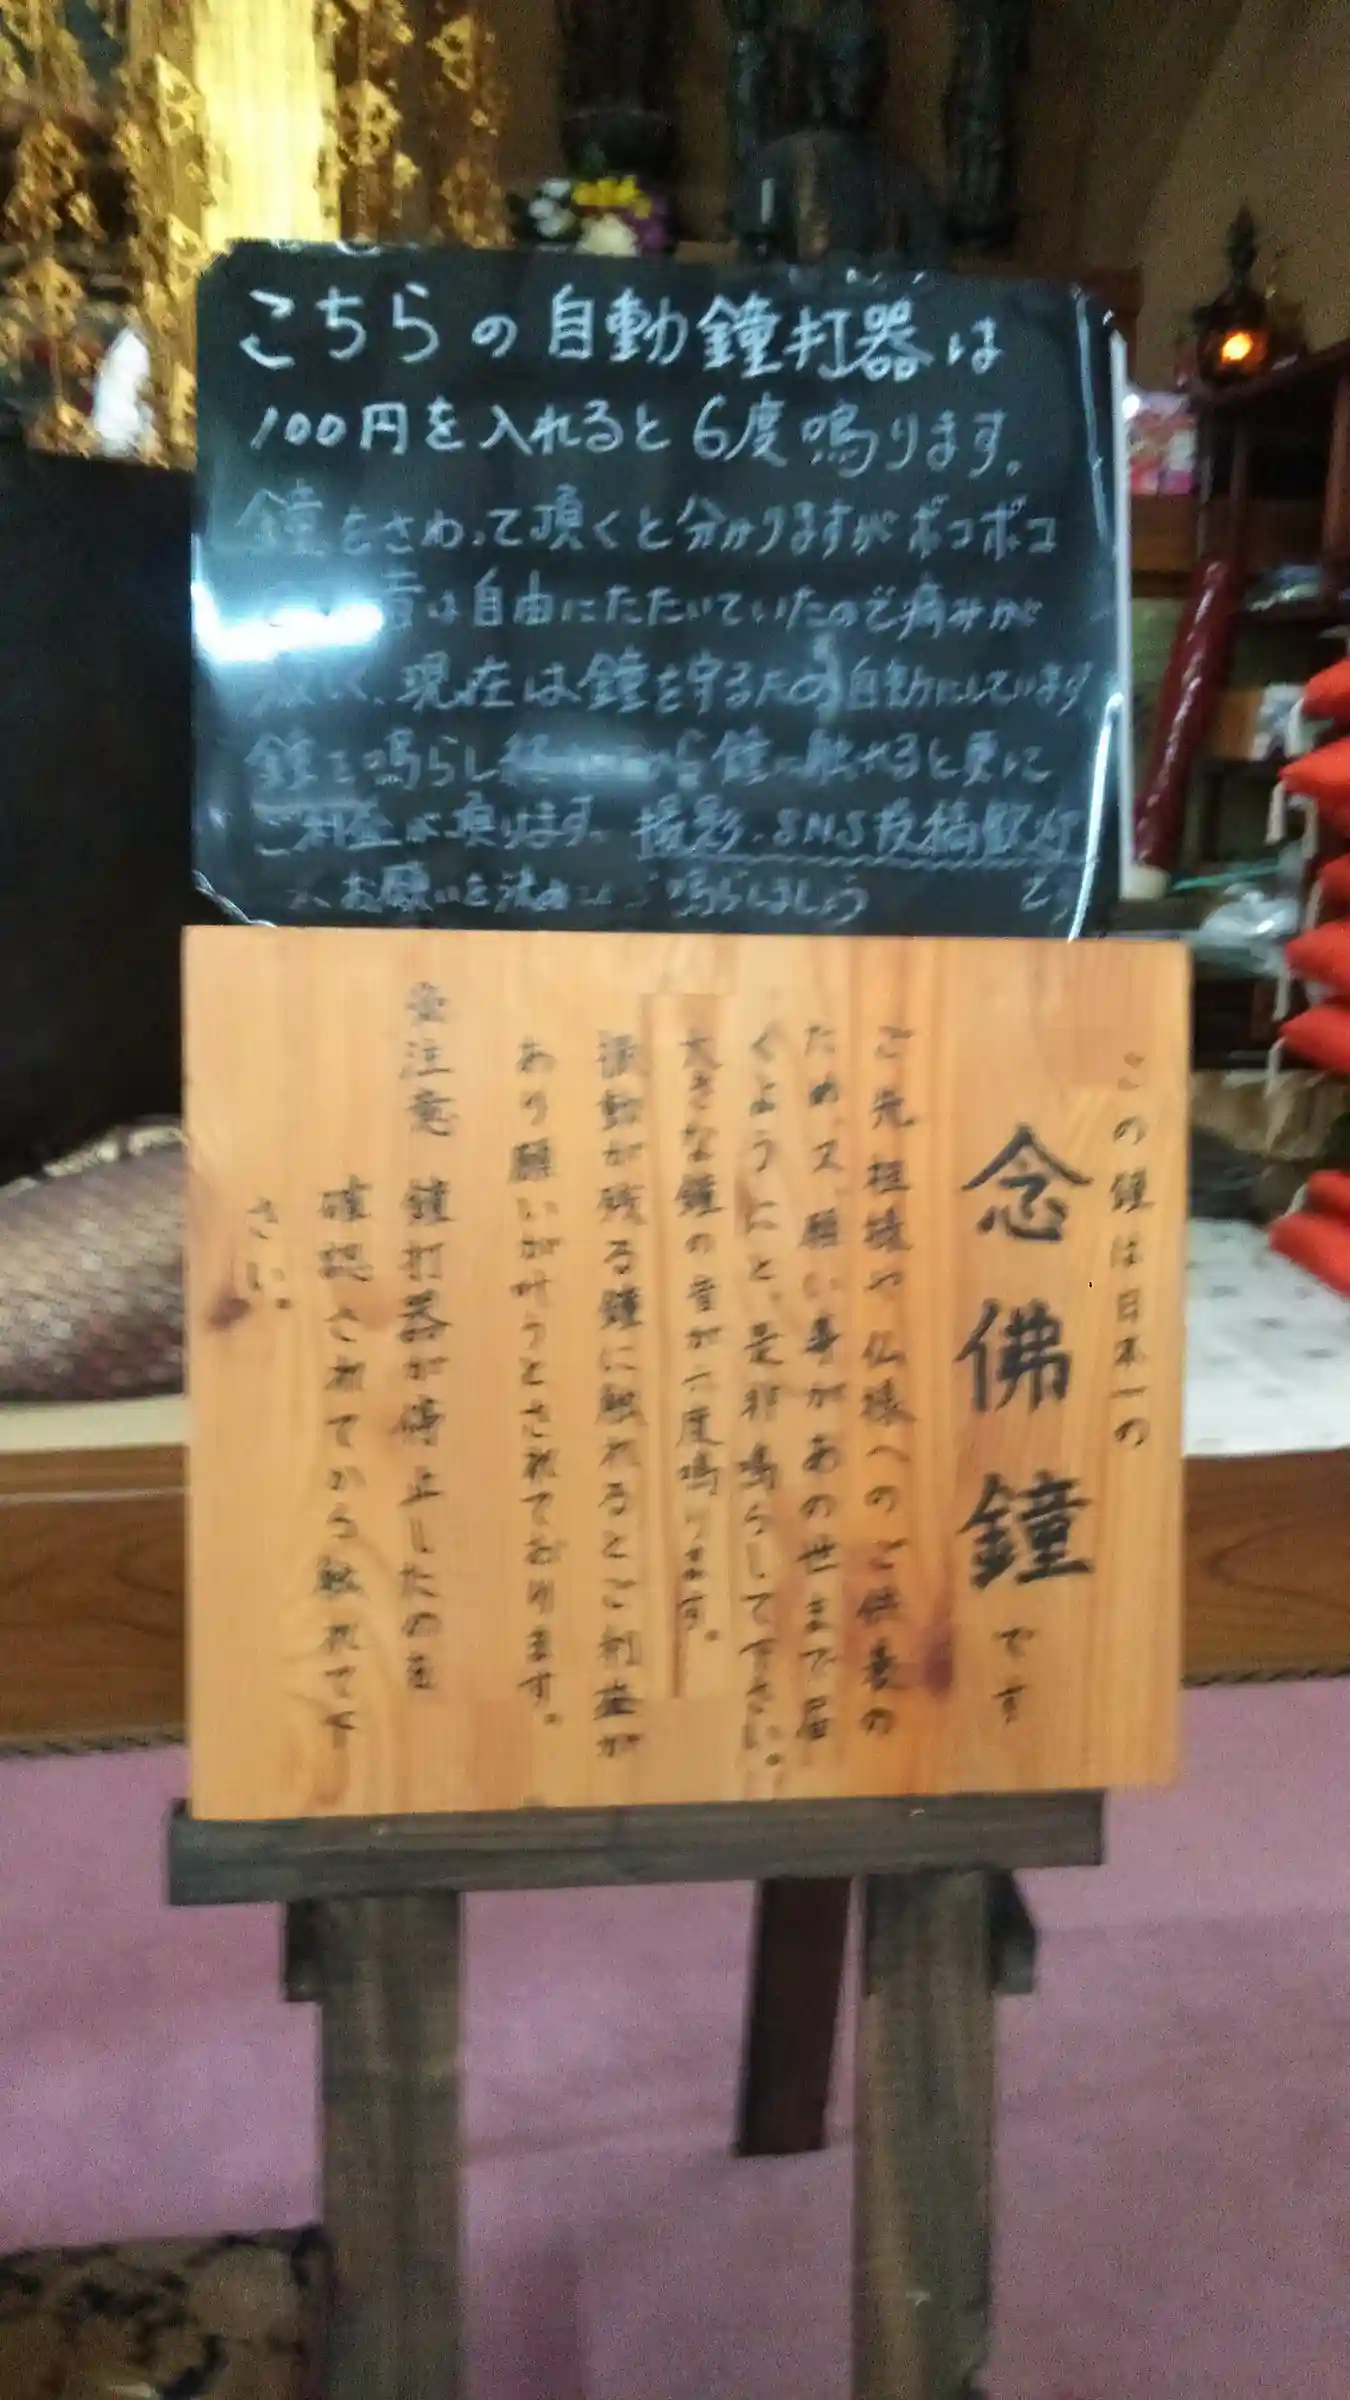 こちらの自動鐘打器は
100円を入れると6度鳴ります。
鐘をさわって頂くと分かりますがボコボコ
昔は自由にたたいていたので痛みが
現在は鐘を守るため自動にしています
鐘を鳴らし から鐘に触れると更に
ご利益が有ります 撮影・SNS投稿歓迎
お願いを 鳴らしましょう
この鐘は日本一の
念佛鐘です
ご先祖様や仏様へのご供養の
ため、又、願い事があの世まで届
くようにと、是非鳴らして下さい。
大きな鐘の音が六度鳴ります。
振動が残る鐘に触れるとご利益が
あり願いが叶うとされております。
注意 鐘打器が停止したのを
確認されてから触れて下
さい。